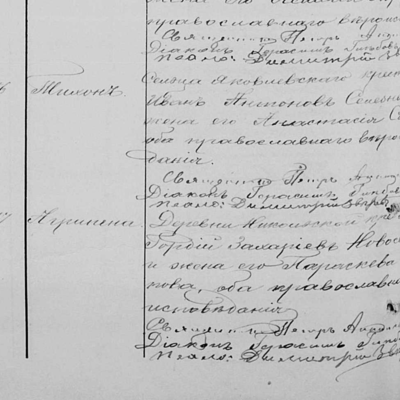 жена его
православнаго вѣроис
Священникъ Петръ
Діаконъ Герасимъ
Псалом: Димитрій
6 Тихонъ. Сельца Яковлевскаго крест
Иванъ Антоновъ
жена его Анастасія
оба православнаго вѣроис
данія.
Священникъ Петръ
Діаконъ Герасимъ
Псалом: Димитрій
7 Агрипена. Деревни Никольской крес
Гордій Захаріевъ
и жена его Параскева
нова, оба православна
исповѣданія
Священникъ Петръ
Діаконъ Герасимъ
Псалом: Димитрій